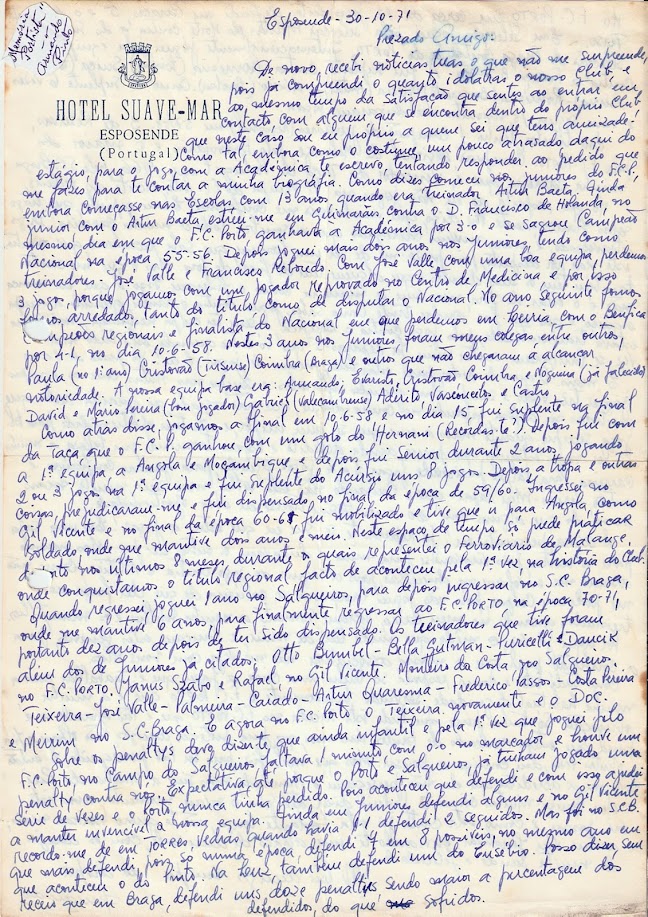 Memória
Portista
Armando
Pinto
Esposende - 30-10-71
Prezado Amigo:
HOTEL SUAVE-MAR
ESPOSENDE
(Portugal)
De novo, recebi notícias tuas o que não me surpreende,
pois já compreendi o quanto idolatras o nosso Club, e
ao mesmo tempo da satisfação que sentes ao entrar em
contacto com alguem que se encontra dentro do próprio Club
que neste caso sou eu próprio a quem sei que tens amizade!
Como tal, embora como o costume, um pouco atrasado daqui do
estágio, para o jogo com a Académica te escrevo, tentando responder ao pedido que
me fazes para te contar a minha biografia. Como dizes comecei nos juniores do F.C.P.,
embora começasse nas Escolas com 13 anos quando era treinador Artur Baeta. Ainda
junior com o Artur Baeta, estreei-me em Guimarães contra o D. Francisco de Holanda, no
mesmo dia em que o F.C. Porto, ganhava a Académica por 3-0 e se sagrou Campeão
Nacional na época 55-56. Depois joguei mais dois anos nos Juniores, tendo como
treinadores: José Valle e Francisco Reboredo. Com José Valle com uma boa equipa, perdemos
3 jogos, porque jogamos com um jogador reprovado no Centro de Medicina e por isso
fomos arredados, tanto do título como de disputar o Nacional. No ano seguinte fomos
Campeões regionais e finalista do Nacional em que perdemos em Leiria com o Benfica
por 4-1, no dia 10-6-58. Nestes 3 anos nos Juniores, foram meus colegas entre outros,
Paula (no 1º ano) Cristovão (Tirsense) Coimbra (Braga) e outros que não chegaram a alcançar
notoriedade. A nossa equipa base era: Armando; Evaristo, Cristovão, Coimbra e Nogueira (já falecido)
David e Mário Pereira (bom jogador) Gabriel (Valecambrense) Adérito, Vasconcelos e Castro
Como atrás disse, jogamos a final em 10.6.58 e no dia 15 fui suplente na final
da Taça, que o F.C.P. ganhou, com um golo do Hernani (Recordas-te?), depois fui com
a 1ª equipa, a Angola e Moçambique e depois fui Senior durante 2 anos, jogando
2 ou 3 jogos na 1ª equipa e fui suplente do Acúrsio uns 8 jogos. Depois, a tropa e outras
coisas, prejudicaram-me e fui dispensado, no final da época de 59/60. Ingressei no
Gil Vicente e no final da época 60-61 fui mobilizado e tive que ir para Angola, como
Soldado, onde me mantive dois anos e meio. Neste espaço de tempo só pude praticar
desporto nos últimos 8 meses, durante os quais representei o Ferroviário de Malange,
onde conquistamos o título regional, facto de aconteceu pela 1ª vez na história do Club.
Quando regressei, joguei 1 ano no Salgueiros, para depois ingressar no S.C. Braga,
onde me mantive 6 anos, para finalmente regressar ao F.C. PORTO, na época 70-71,
portanto dez anos depois de ter sido dispensado. Os treinadores que tive foram
além dos de Juniores já citados, Otto Bumbel - Bella Gutman - Puricelli e Daucik
no F.C. PORTO. Janus Szabo e Rafael no Gil Vicente. Monteiro da Costa no Salgueiros.
Teixeira - José Valle - Palmeira - Caiado - Artur Quaresma - Frederico Passos - Costa Pereira
e Merrim no S.C. Braga. E agora no F.C. Porto o Teixeira novamente e o DOC.
Sobre os penaltys devo dizer-te que ainda infantil e pela 1ª vez que joguei pelo
F.C. Porto, no Campo do Salgueiros faltava 1 minuto, com 0-0 no marcador e houve um
penalty contra nós. Expectativa, até porque o Porto e Salgueiros já tinham jogado uma
série de vezes e o Porto nunca tinha perdido. Pois aconteceu que defendi e com isso ajudei
a manter invencível a nossa equipa. Ainda em Juniores defendi alguns e no Gil Vicente
recordo-me de em TORRES VEDRAS, quando havia 1-1 defendi 2 seguidos. Mas foi no S.C.B.
que mais defendi, pois só numa época, defendi 4 em 8 possíveis, no mesmo ano em
que aconteceu o do Pinto. Na Luz, também defendi um do Eusébio. Posso dizer sem
receio que em Braga, defendi uns doze penaltys sendo maior a percentagem dos
defendidos, do que sofridos.